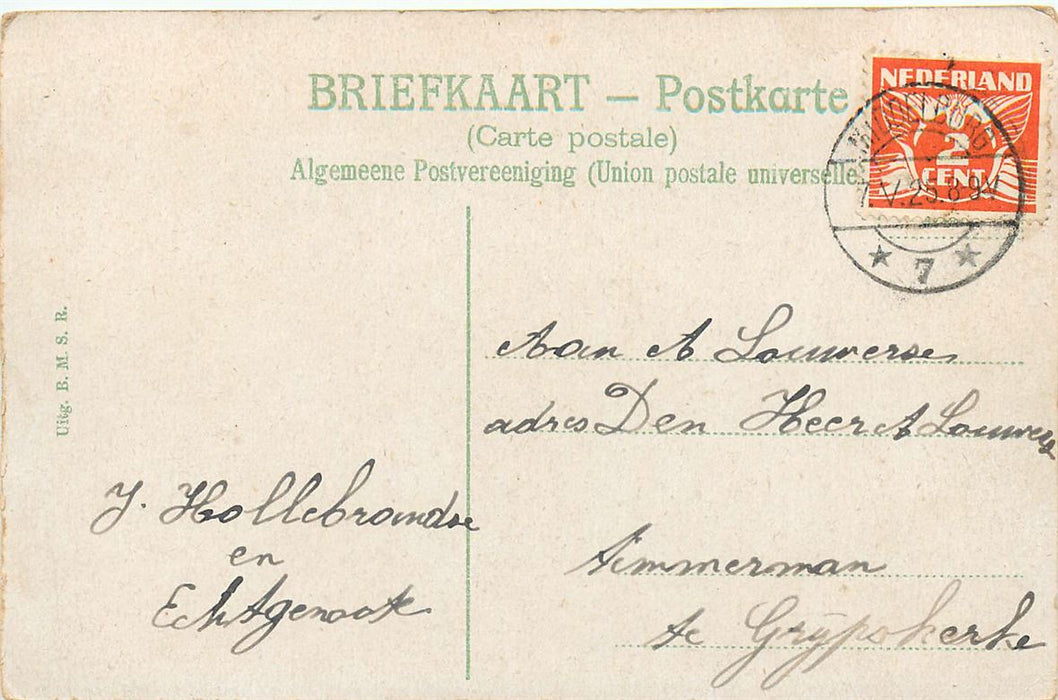 BRIEFKAART — Postkarte
(Carte postale)
Algemeene Postvereeniging (Union postale universelle)
NEDERLAND
2
CENT
MIDDELBURG
7.IV.25.8-9V
★ 7 ★
Uitg. B. M. S. R.
Aan A Louwerse
adres Den Heer A Louwerse
Timmerman
te Grÿpskerke
J. Hollebrandse
en
Echtgenoote